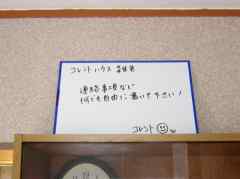 コレントハウス
連絡事項など
何でも自由に書いて下さい!
コレント